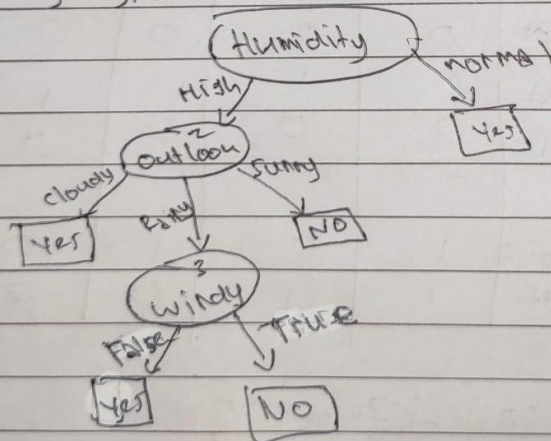 Humidity
High
normal
Yes
2
outlook
cloudy
Rainy
sunny
Yes
NO
3
windy
False
True
Yes
NO